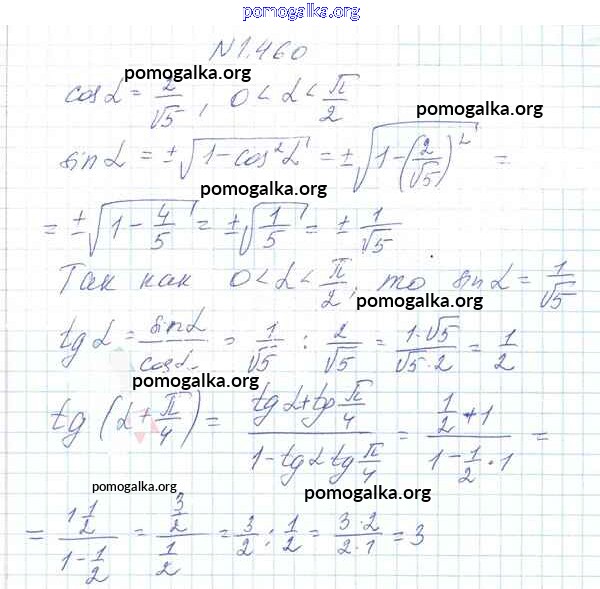 pomogalka.org
N1.460
pomogalka.org
cos α = 2/√5, 0 < α < π/2
pomogalka.org
sin α = ±√(1-cos²α) = ±√(1-(2/√5)²) =
pomogalka.org
= ±√(1-4/5) = ±√(1/5) = ± 1/√5
Так как 0 < α < π/2, то sin α = 1/√5
pomogalka.org
tg α = sin α/cos α = 1/√5 : 2/√5 = 1·√5/√5·2 = 1/2
pomogalka.org
pomogalka.org
tg(α + π/4) = (tg α + tg π/4)/(1 - tg α tg π/4) = (1/2 + 1)/(1 - 1/2 · 1) =
pomogalka.org
pomogalka.org
= (1 1/2)/(1 - 1/2) = (3/2)/(1/2) = 3/2 : 1/2 = 3·2/2·1 = 3